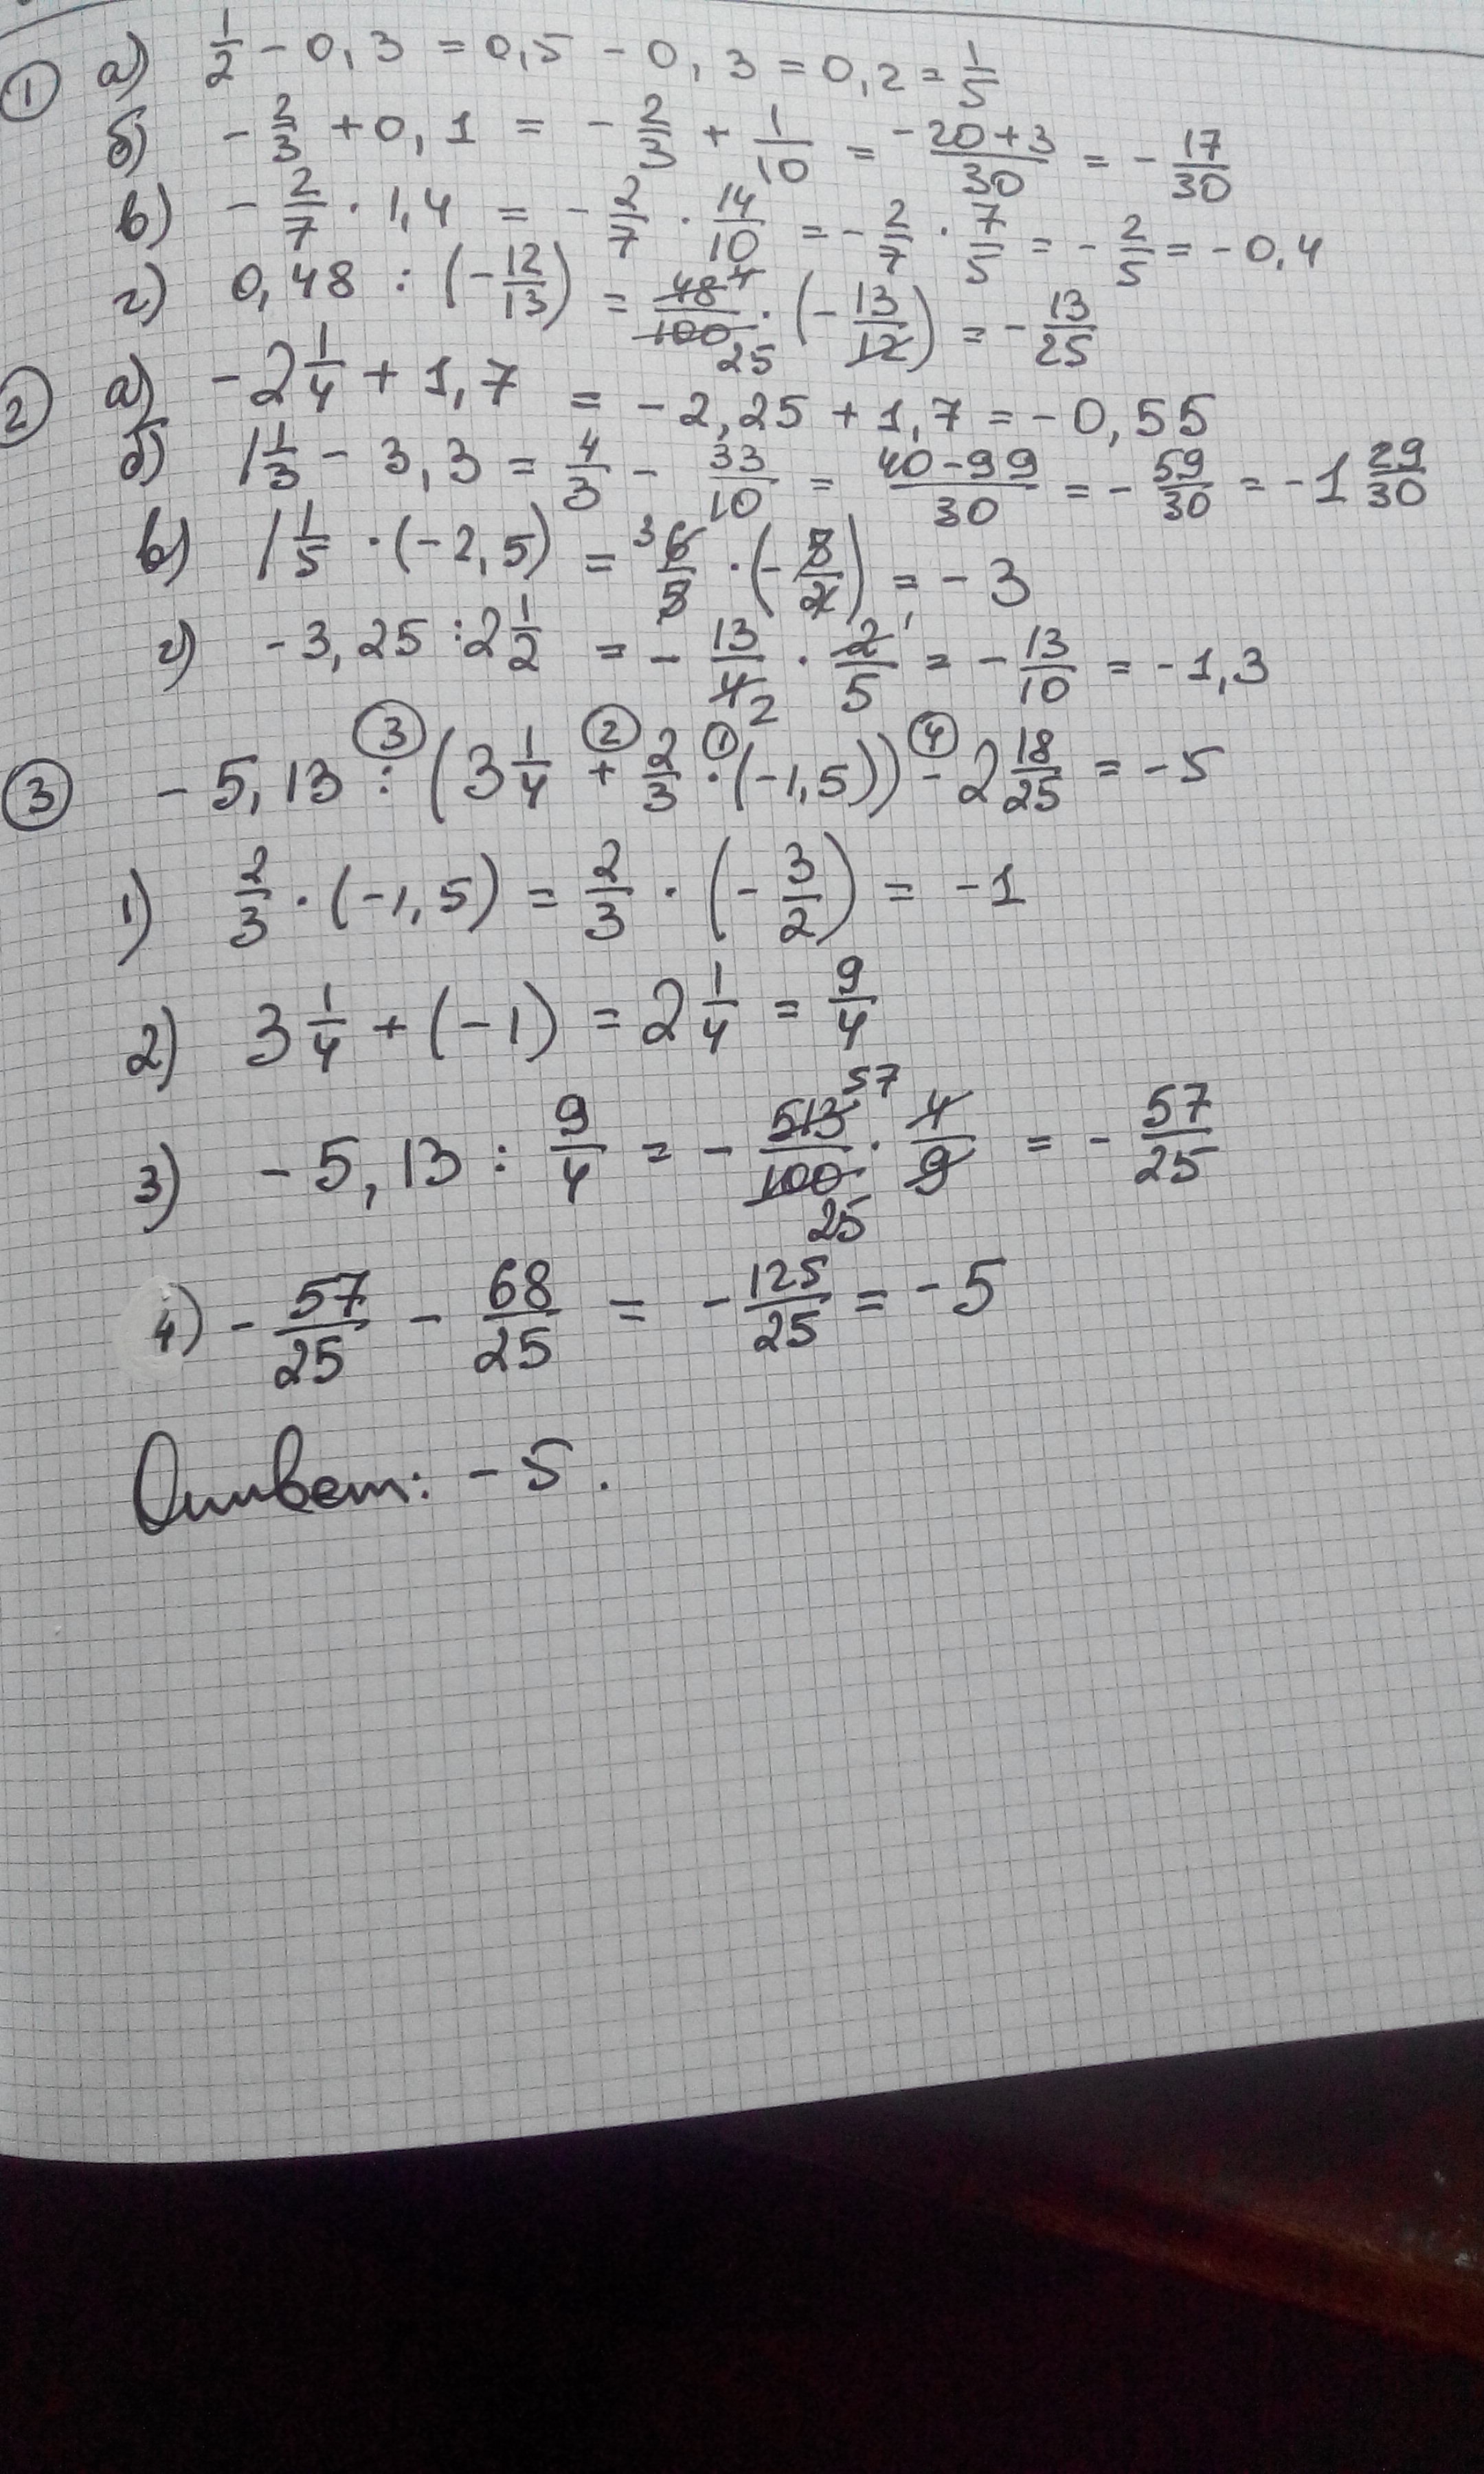 ① а) 1/2 - 0,3 = 0,5 - 0,3 = 0,2 = 1/5
б) - 2/3 + 0,1 = - 2/3 + 1/10 = (-20+3)/30 = - 17/30
в) - 2/7 · 1,4 = - 2/7 · 14/10 = - 2/7 · 7/5 = - 2/5 = - 0,4
г) 0,48 : (- 12/13) = 48 4/100 25 · (- 13/12) = - 13/25
② а) - 2 1/4 + 1,7 = - 2,25 + 1,7 = - 0,55
б) 1 1/3 - 3,3 = 4/3 - 33/10 = (40-99)/30 = - 59/30 = - 1 29/30
в) 1 1/5 · (- 2,5) = 3 6/5 · (- 5/2) = - 3
г) - 3,25 : 2 1/2 = - 13/4 2 · 2 1/5 = - 13/10 = - 1,3
③ ② ① ④
③ - 5,13 : (3 1/4 + 2/3 · (-1,5)) - 2 18/25 = - 5
1) 2/3 · (-1,5) = 2/3 · (- 3/2) = - 1
2) 3 1/4 + (-1) = 2 1/4 = 9/4
3) - 5,13 : 9/4 = - 513 57/100 25 · 4/9 = - 57/25
4) - 57/25 - 68/25 = - 125/25 = - 5
Ответ: - 5.